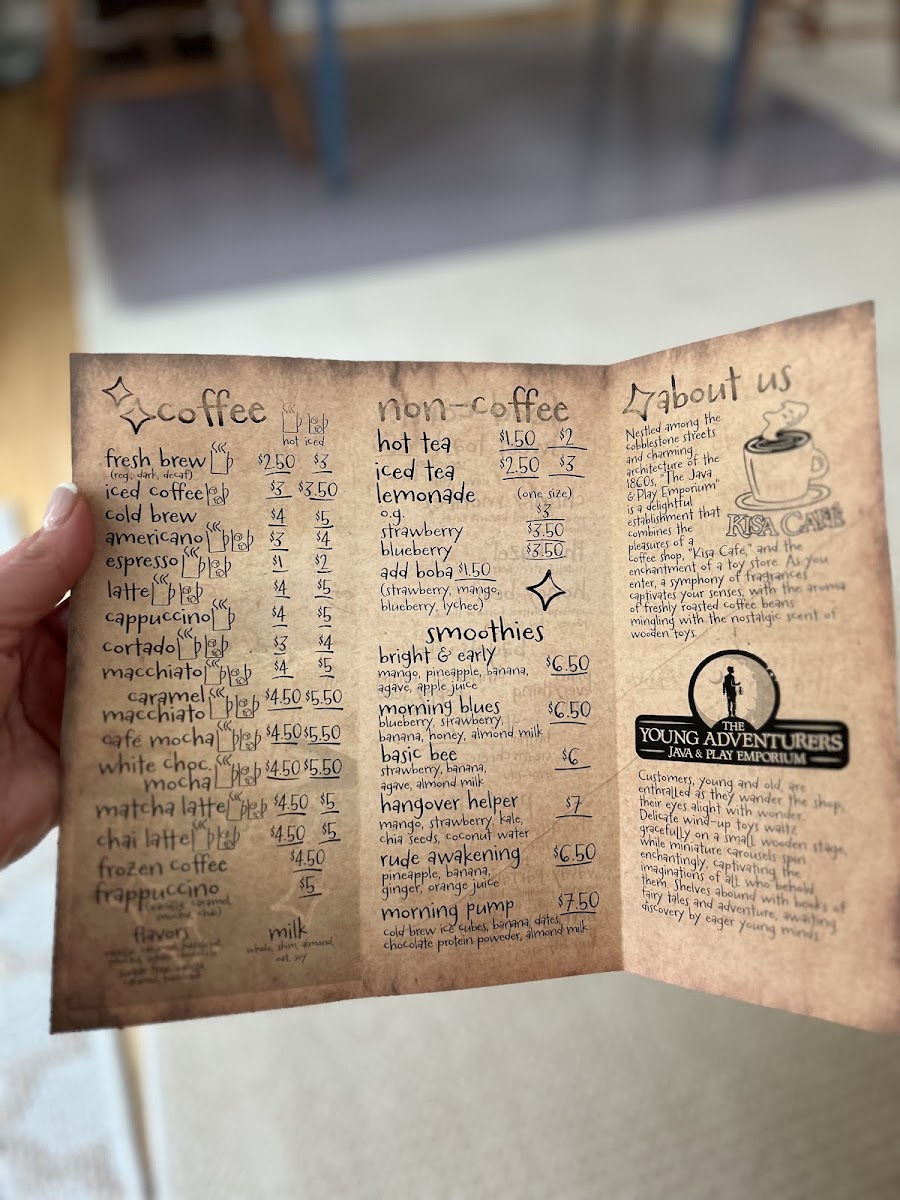 coffee
hot iced
fresh brew $2.50 $3
(reg, dark, decaf)
iced coffee $3 $3.50
cold brew $4 $5
americano $3 $4
espresso $1 $2
latte $4 $5
cappuccino $4 $5
cortado $3 $4
macchiato $4 $5
caramel
macchiato $4.50 $5.50
café mocha $4.50 $5.50
white choc.
mocha $4.50 $5.50
matcha latte $4.50 $5
chai latte $4.50 $5
frozen coffee $4.50
frappuccino $5
(vanilla, caramel,
mocha, chai)
flavors
milk
whole, skim, almond,
oat, soy
non-coffee
hot tea $1.50 $2
iced tea $2.50 $3
lemonade (one size)
o.g. $3
strawberry $3.50
blueberry $3.50
add boba $1.50
(strawberry, mango,
blueberry, lychee)
smoothies
bright & early $6.50
mango, pineapple, banana,
agave, apple juice
morning blues $6.50
blueberry, strawberry,
banana, honey, almond milk
basic bee $6
strawberry, banana,
agave, almond milk
hangover helper $7
mango, strawberry, kale,
chia seeds, coconut water
rude awakening $6.50
pineapple, banana,
ginger, orange juice
morning pump $7.50
cold brew ice cubes, banana, dates,
chocolate protein poweder, almond milk
about us
Nestled among the
cobblestone streets
and charming
architecture of the
1860s, "The Java
& Play Emporium"
is a delightful
establishment that
combines the
pleasures of a
coffee shop, "Kisa Cafe," and the
enchantment of a toy store. As you
enter, a symphony of fragrances
captivates your senses, with the aroma
of freshly roasted coffee beans
mingling with the nostalgic scent of
wooden toys.
KISA CAFÉ
THE
YOUNG ADVENTURERS
JAVA & PLAY EMPORIUM
Customers, young and old, are
enthralled as they wander the shop,
their eyes alight with wonder.
Delicate wind-up toys waltz
gracefully on a small wooden stage,
while miniature carousels spin
enchantingly, captivating the
imaginations of all who behold
them. Shelves abound with books of
fairy tales and adventure, awaiting
discovery by eager young minds.